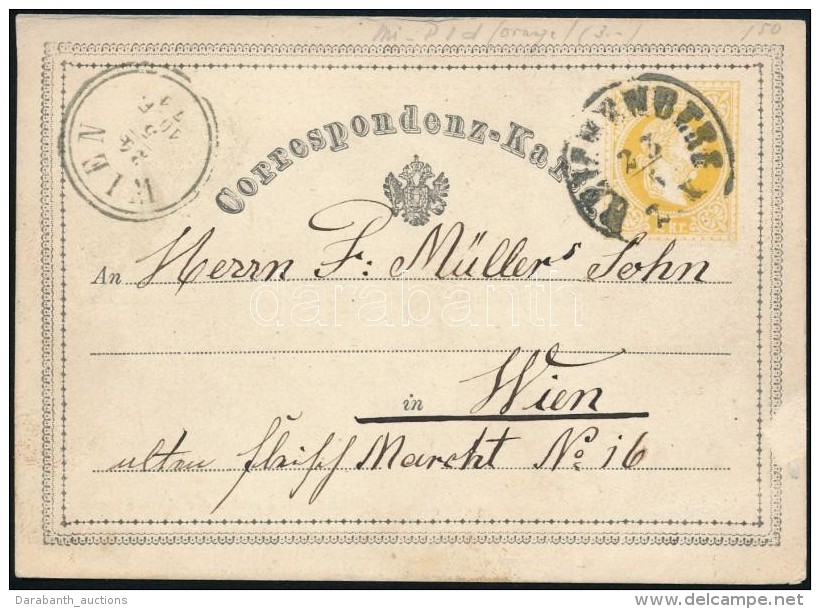 Mi-P 1 d /orange/ (3.-) /50
WIEN
Correspondenz-Karte
2 Kr.
An Herrn F: Müllers Sohn
darabanth
in Wien
alten fleisch Marckt No 16
Darabanth_auctions
delcampe.net